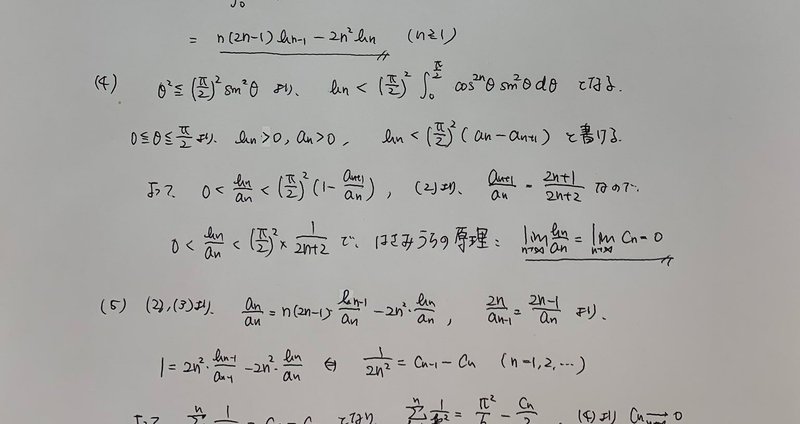 = n(2n-1)bn-1 - 2n²bn (n≧1)
(4) θ² ≦ (π/2)² sin²θ より、 bn < (π/2)² ∫₀^(π/2) cos²ⁿθ sin²θ dθ となる.
0≦θ≦π/2 より、bn>0, an>0, bn < (π/2)² (an - an+1) と書ける.
よって、 0 < bn/an < (π/2)² (1 - an+1/an), (2)より、 an+1/an = 2n+1/2n+2 なので、
0 < bn/an < (π/2)² × 1/2n+2 で、はさみうちの原理: lim n→∞ bn/an = lim n→∞ Cn = 0
(5) (2),(3)より、 an/an = n(2n-1)・bn-1/an - 2n²・bn/an, 2n/an-1 = 2n-1/an より、
1 = 2n²・bn-1/an-1 - 2n²・bn/an ⇔ 1/2n² = Cn-1 - Cn (n=1,2,…)